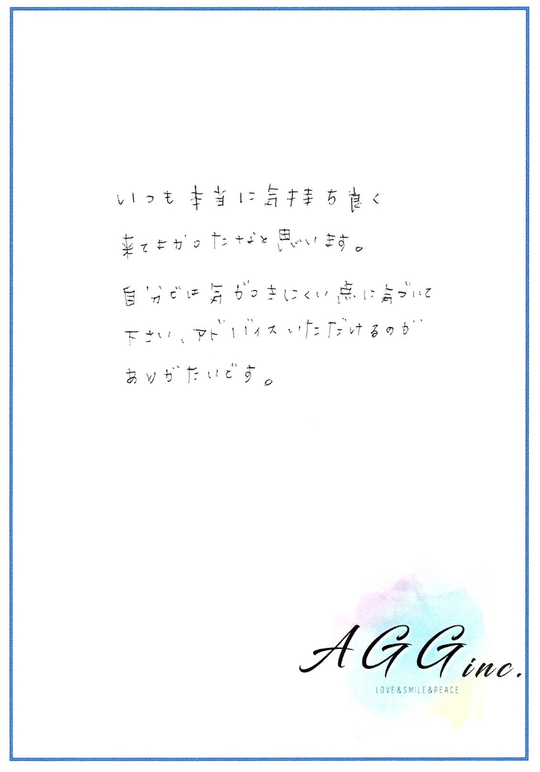 いつも本当に気持ち良く
来てよかったなと思います。
自分では気がつきにくい点に気づいて
下さい、アドバイスいただけるのが
ありがたいです。
AGG inc.
LOVE&SMILE&PEACE